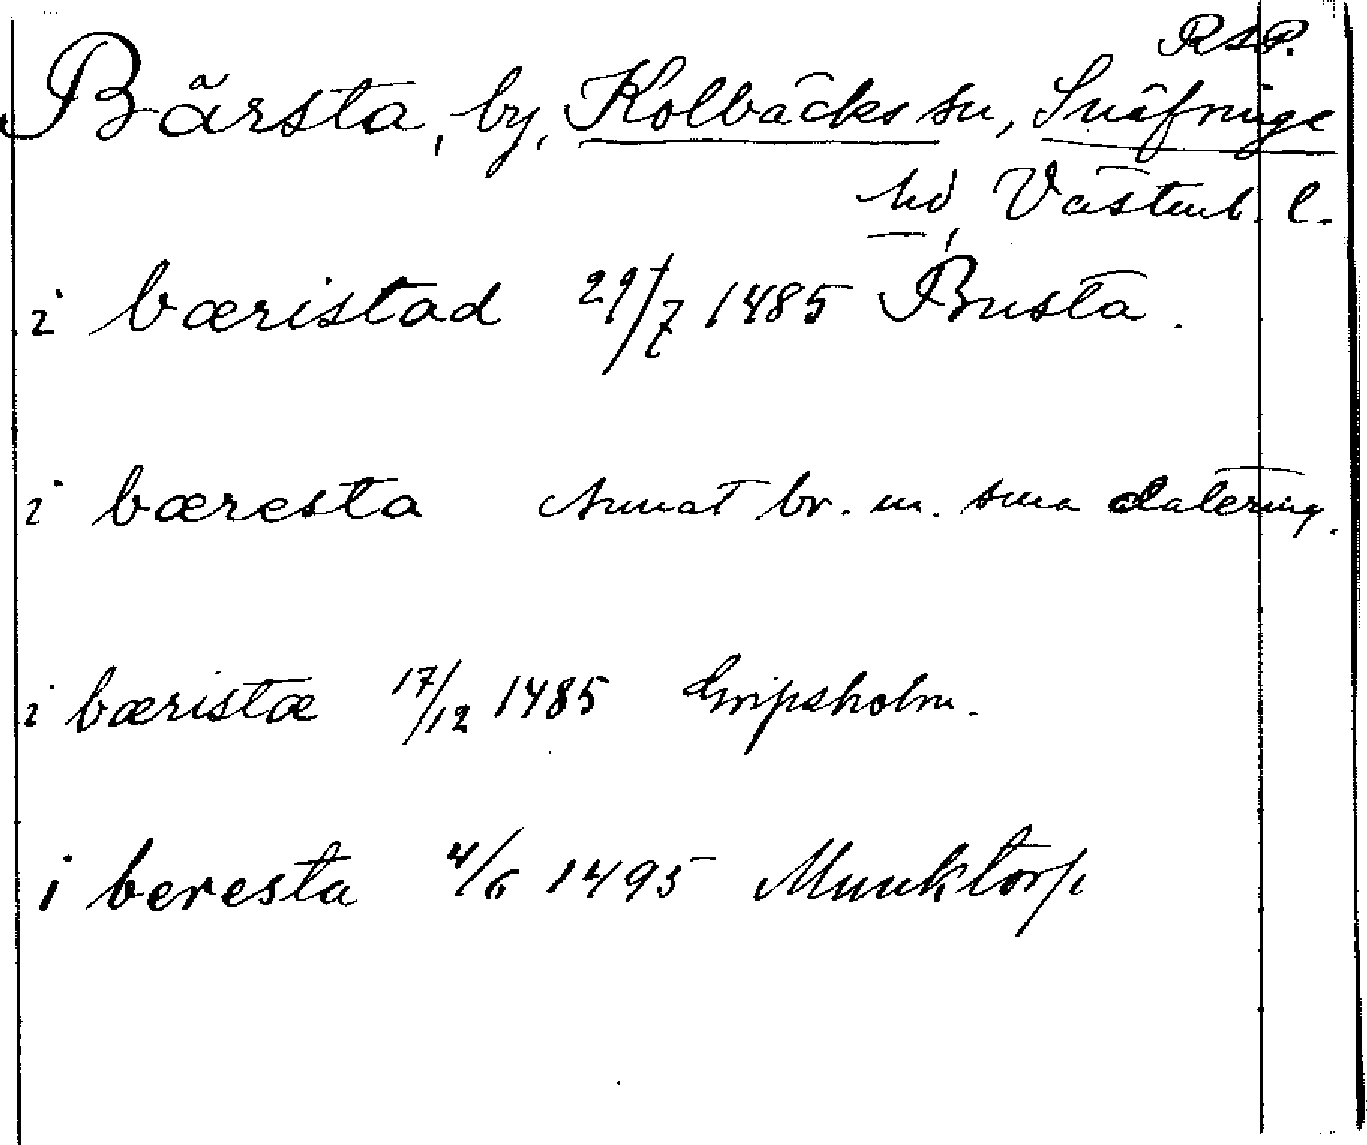 RAP.
Bärsta, by, Kolbäcks sn, Snäfringe
hd, Västml. l.
i bæristad 29/7 1485 Busta.
i bæresta Annat br. m. sma datering.
i bæristæ 17/12 1485 Gripsholm.
i beresta 4/6 1495 Munktorp